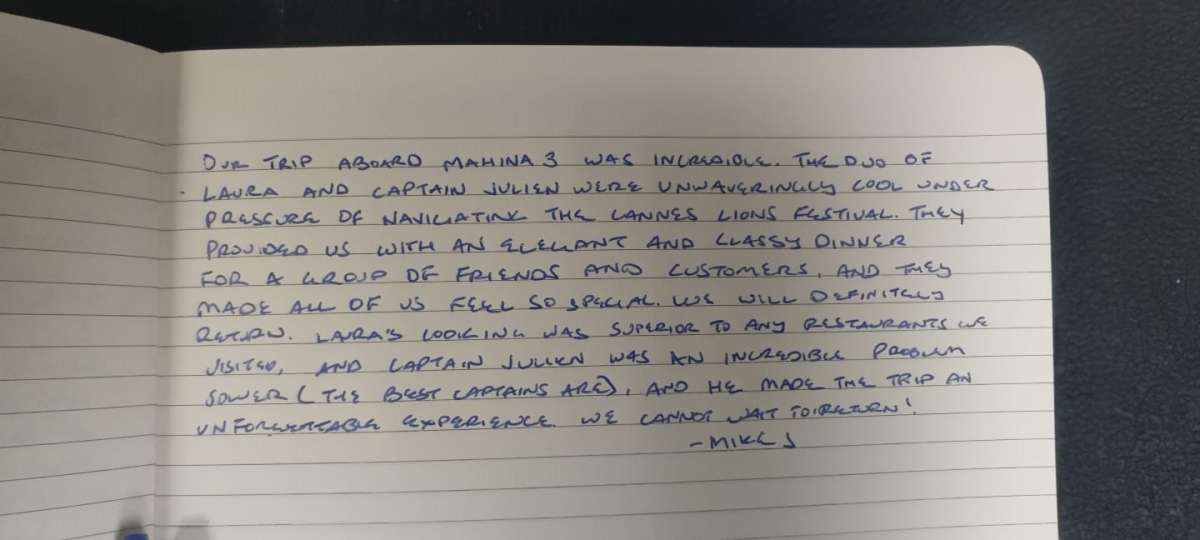 OUR TRIP ABOARD MAHINA 3 WAS INCREDIBLE. THE DUO OF
LAURA AND CAPTAIN JULIEN WERE UNWAVERINGLY COOL UNDER
PRESSURE OF NAVIGATING THE CANNES LIONS FESTIVAL. THEY
PROVIDED US WITH AN ELEGANT AND CLASSY DINNER
FOR A GROUP OF FRIENDS AND CUSTOMERS, AND THEY
MADE ALL OF US FEEL SO SPECIAL. WE WILL DEFINITELY
RETURN. LAURA'S COOKING WAS SUPERIOR TO ANY RESTAURANTS WE
VISITED, AND CAPTAIN JULIEN WAS AN INCREDIBLE PROBLEM
SOLVER (THE BEST CAPTAINS ARE), AND HE MADE THE TRIP AN
UNFORGETTABLE EXPERIENCE. WE CANNOT WAIT TO RETURN!
- MIKE J